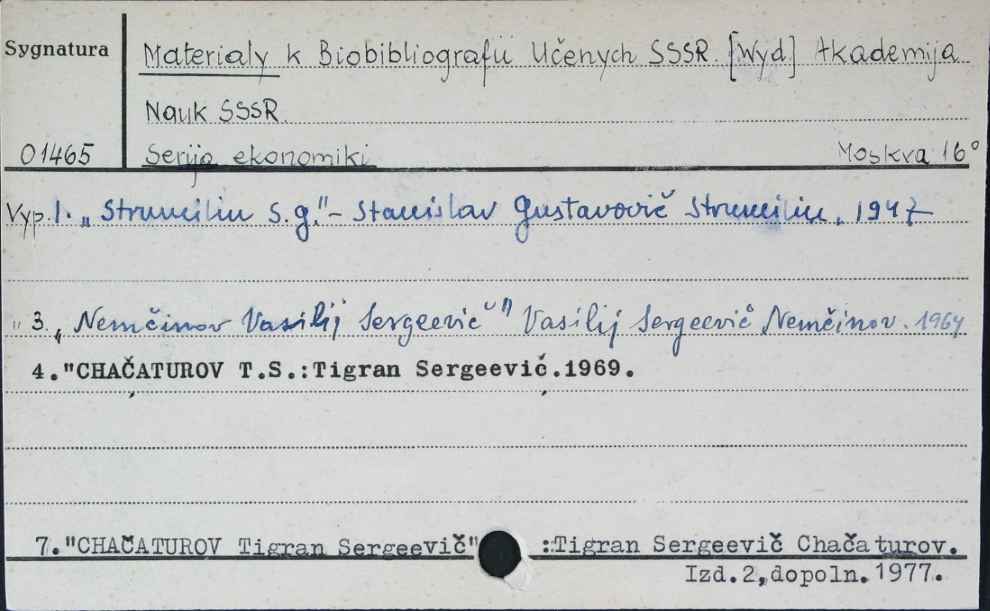 Sygnatura
Materialy k Biobibliografii Učenych SSSR. [Wyd] Akademija
Nauk SSSR.
01465 Serija ekonomiki Moskva 16°
Vyp. 1. „Strumilin S.g." – Stanislav Gustavovič Strumilin. 1947
" 3. „Nemčinov Vasilij Sergeevič" Vasilij Sergeevič Nemčinov. 1964
4."CHAČATUROV T.S.:Tigran Sergeevič.1969.
7."CHAČATUROV Tigran Sergeevič" :Tigran Sergeevič Chačaturov.
Izd.2,dopoln.1977.